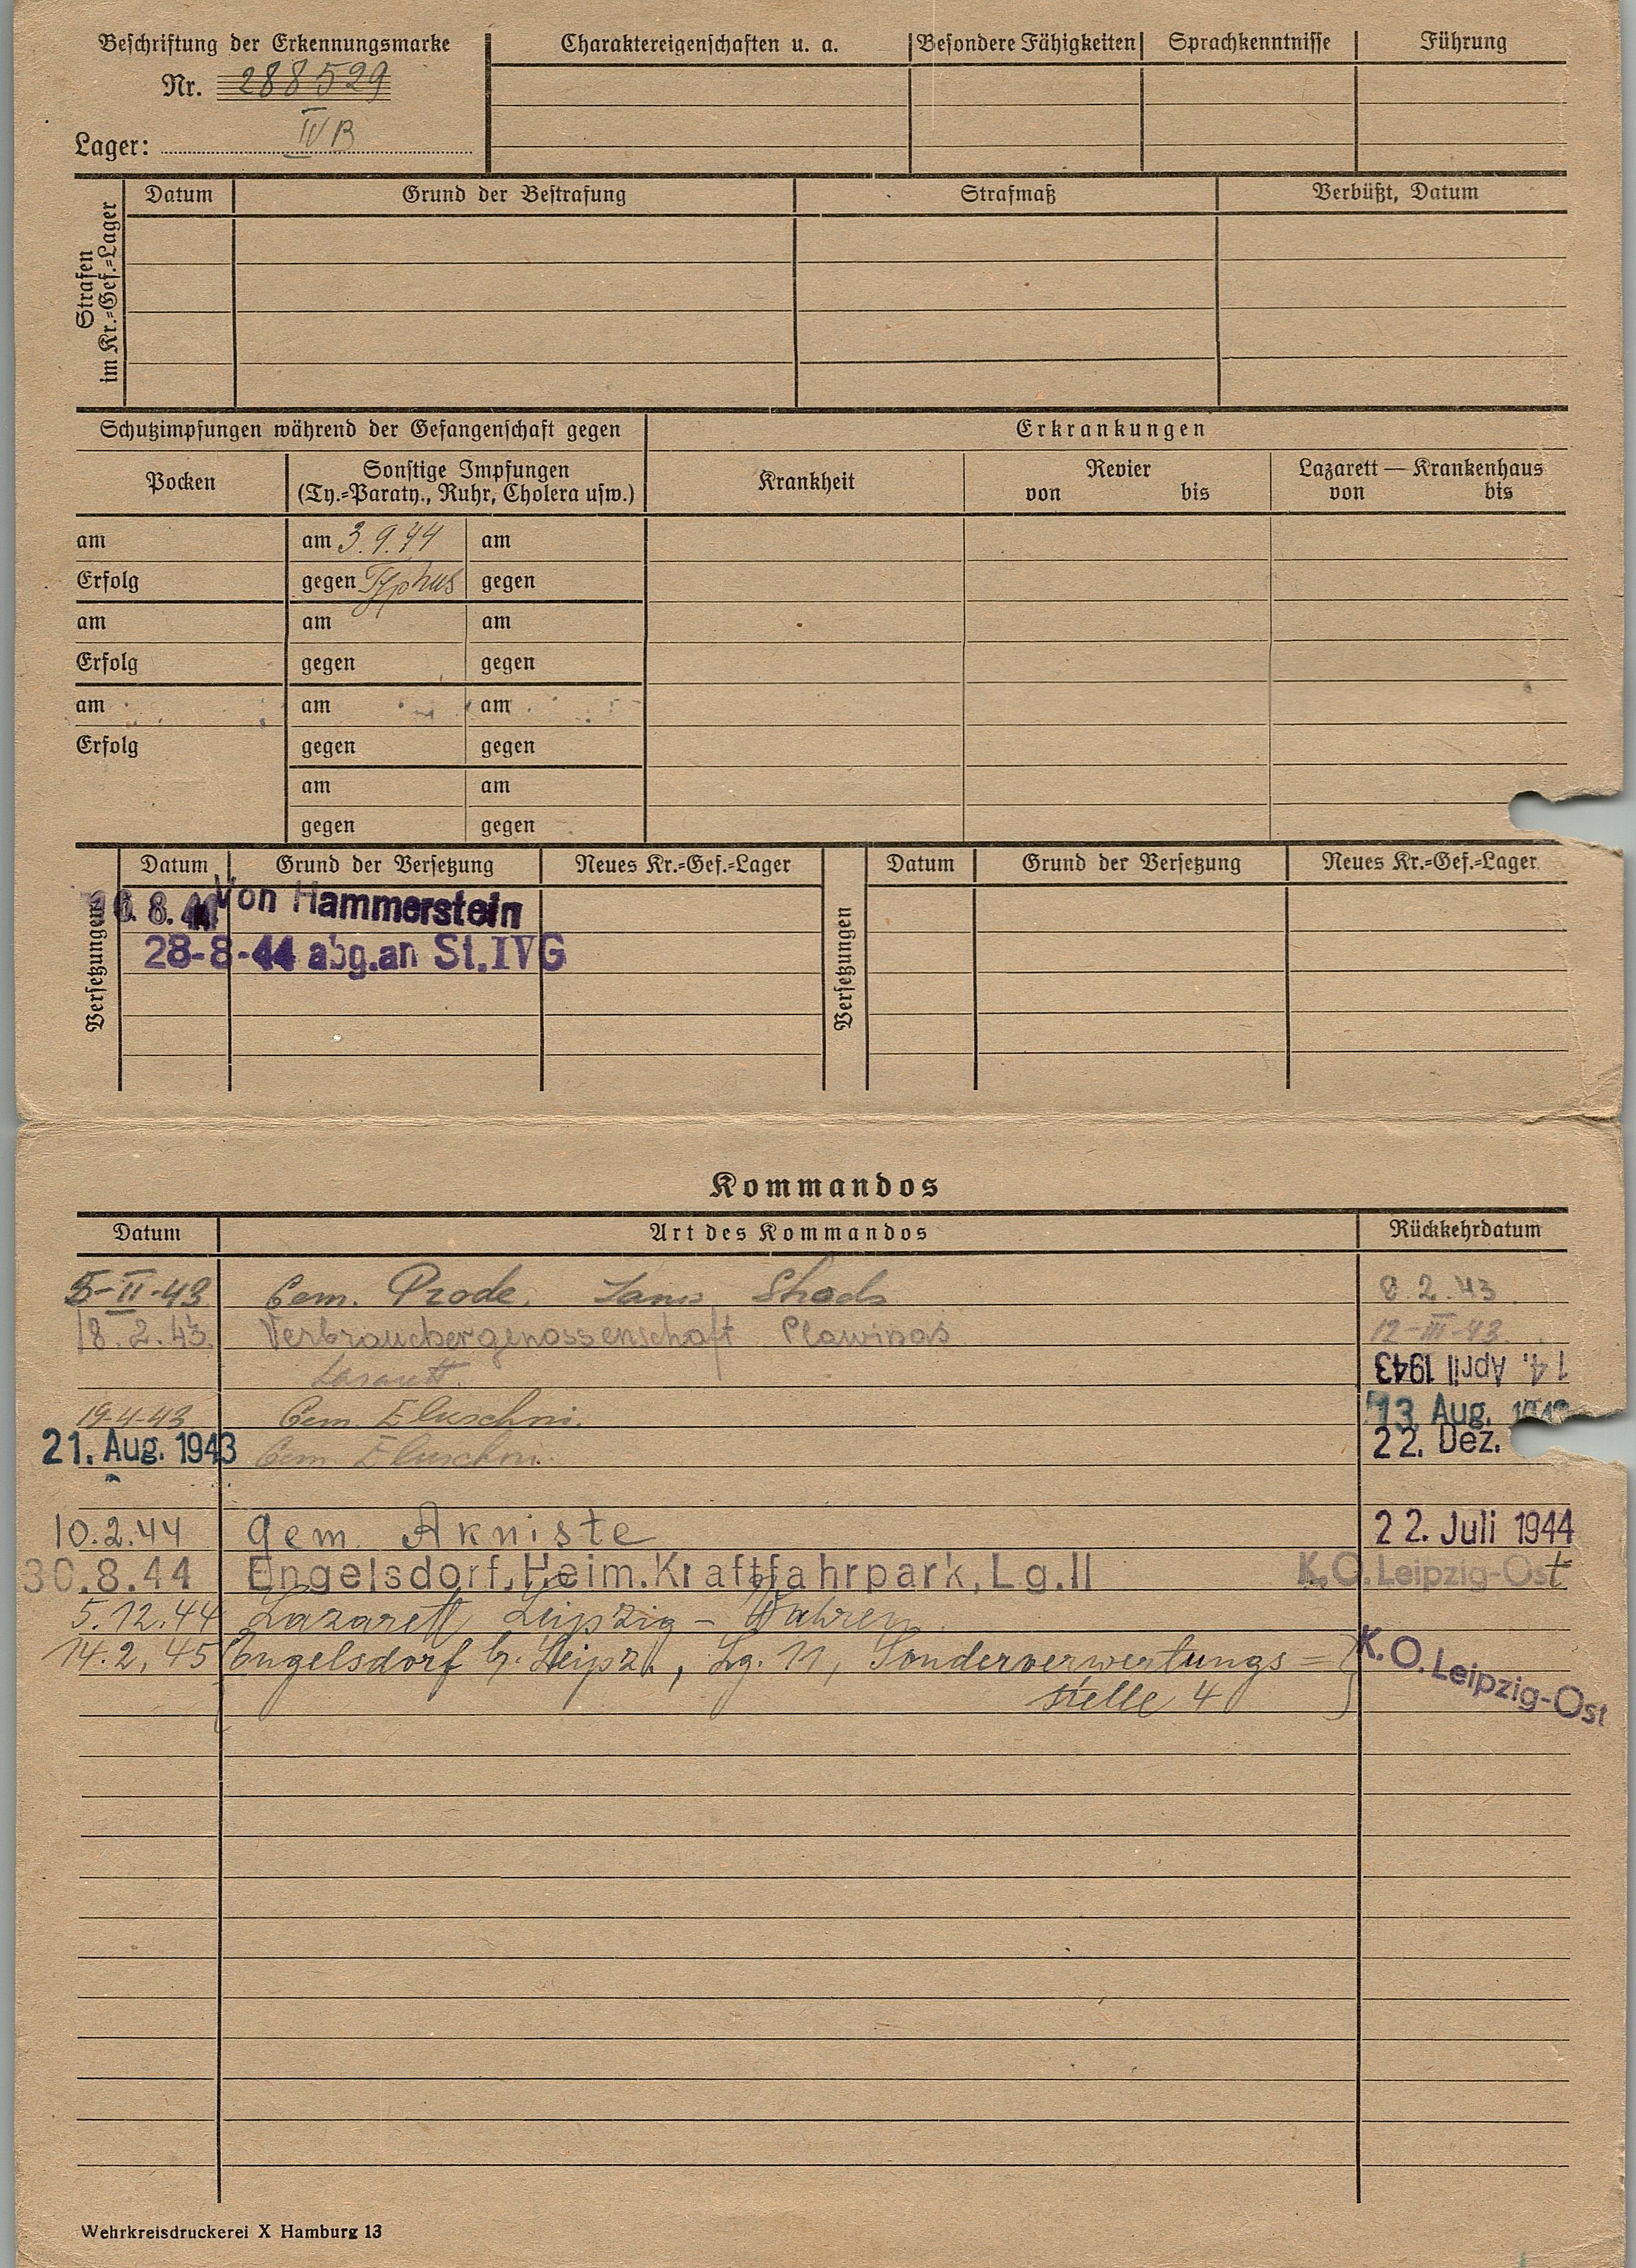 Beschriftung der Erkennungsmarke
Nr. 288529
Lager: IV B
Charaktereigenschaften u. a. Besondere Fähigkeiten Sprachkenntnisse Führung
Strafen im Kr.=Gef.=Lager
Datum Grund der Bestrafung Strafmaß Verbüßt, Datum
Schutzimpfungen während der Gefangenschaft gegen Erkrankungen
Pocken Sonstige Impfungen (Ty.=Paraty., Ruhr, Cholera usw.) Krankheit Revier von bis Lazarett — Krankenhaus von bis
am am 3.9.44 am
Erfolg gegen Typhus gegen
am am am
Erfolg gegen gegen
am am am
Erfolg gegen gegen
am am
gegen gegen
Versetzungen Datum Grund der Versetzung Neues Kr.=Gef.=Lager Versetzungen Datum Grund der Versetzung Neues Kr.=Gef.=Lager
8. Von Hammerstein
28-8-44 abg.an St.IVG
Kommandos
Datum Art des Kommandos Rückkehrdatum
5-II-43 Gem. Prode. 8.2.43
18.2.43. Verbrauchergenossenschaft Plawinas 12-III-43.
Lasarett. 14. April 1943
19-4-43 Gem. Eluschni. 13. Aug. 1943
21. Aug. 1943 Gem. Eluschni. 22. Dez.
10.2.44 gem. Akniste 22. Juli 1944
30.8.44 Engelsdorf,Heim.Kraftfahrpark,Lg.II K.O.Leipzig-Ost
5.12.44 Lazarett Leipzig - Wahren.
14.2.45 Engelsdorf b. Leipz., Lg. 11, Sonderverwertungs= K.O.Leipzig-Ost
stelle 4
Wehrkreisdruckerei X Hamburg 13